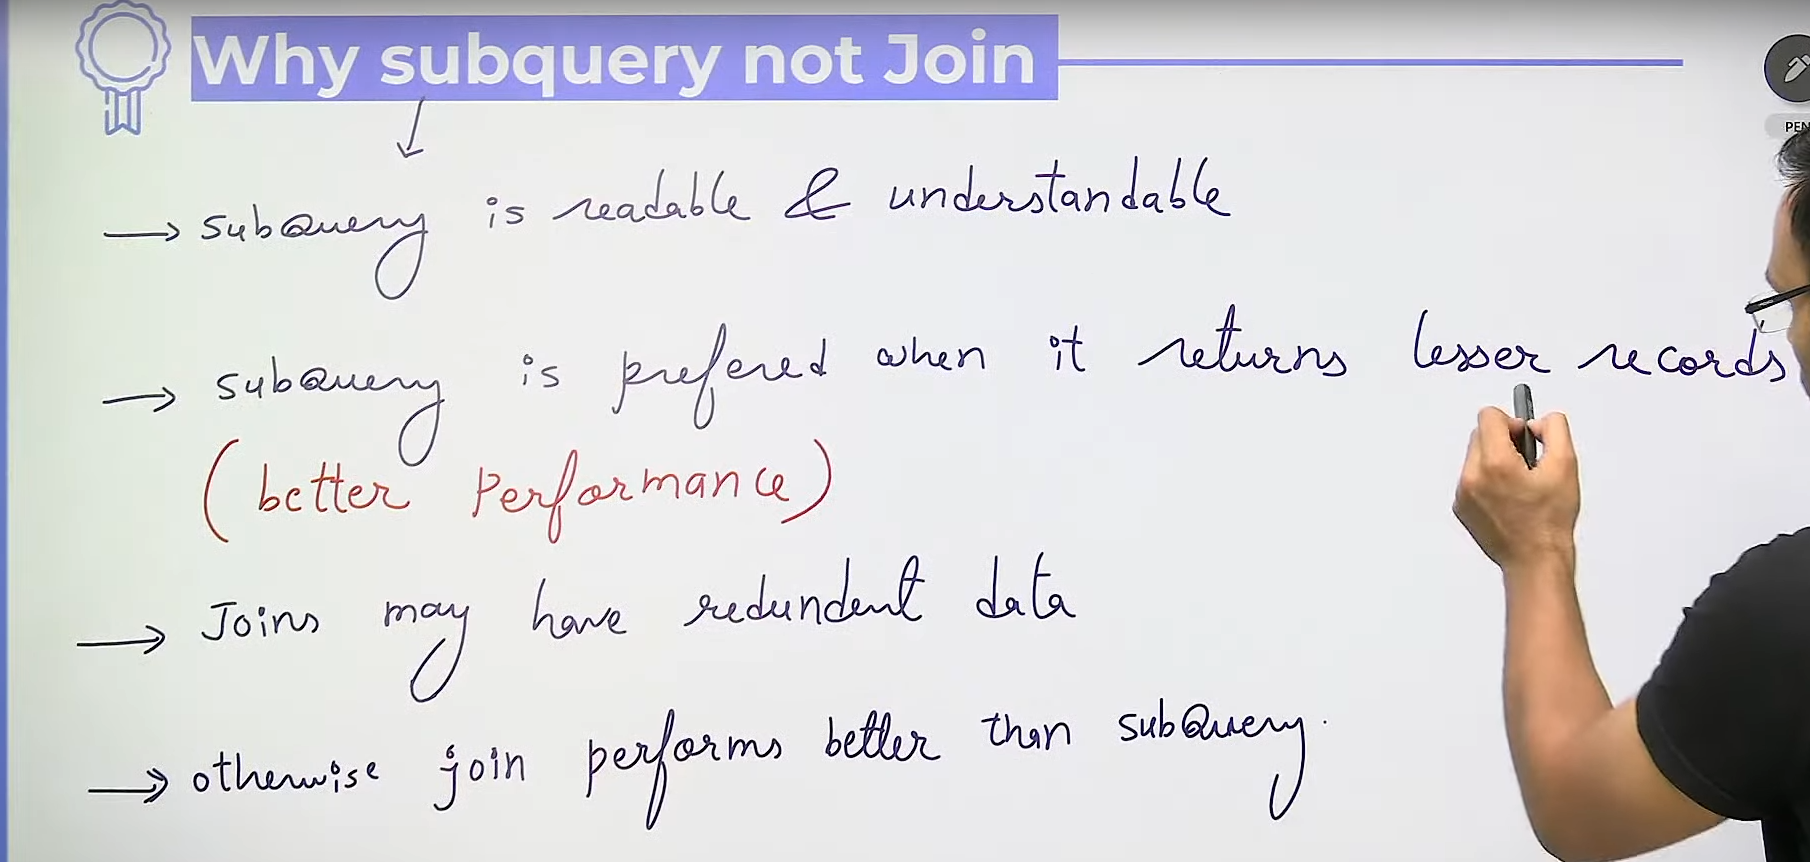 Why subquery not Join
PEN
→ subQuery is readable & understandable
→ subQuery is prefered when it returns lesser records
(better Performance)
→ Joins may have redundent data
→ otherwise join performs better than subQuery.